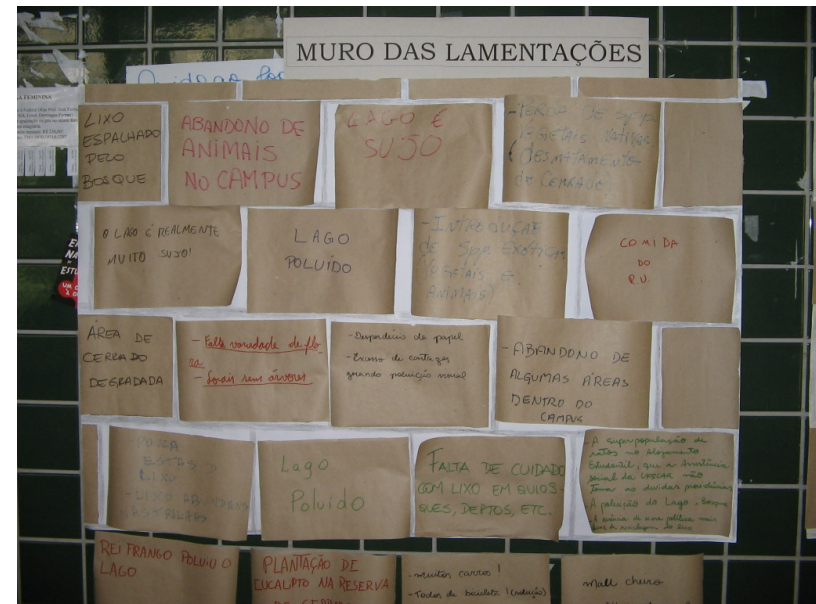 MURO DAS LAMENTAÇÕES
FEMININA
LIXO
ESPALHADO
PELO
BOSQUE
ABANDONO DE
ANIMAIS
NO CAMPUS
LAGO É
SUJO
DE SPP
VEGETAIS NATIVAS
(DESMATAMENTO
DO CERRADO)
O LAGO É REALMENTE
MUITO SUJO!
LAGO
POLUÍDO
- INTRODUÇÃO
DE SPP EXÓTICAS
(VEGETAIS E
ANIMAIS)
COMIDA
DO
R.U.
ÁREA DE
CERRADO
DEGRADADA
- Falta variedade de flo-
ra.
- Locais sem árvores
- Desperdício de papel
- Excesso de cartazes
gerando poluição visual
- ABANDONO DE
ALGUMAS ÁREAS
DENTRO DO
CAMPUS
LIXO
Lago
Poluído
FALTA DE CUIDADO
COM LIXO EM QUIOS-
QUES, DEPTOS, ETC.
- A superpopulação de
ratos no Alojamento
Estudantil, que a Assistência
social da UFSCAR não
Toma as devidas providências
A poluição do Lago, Bosque
REI FRANGO POLUIU O
LAGO
PLANTAÇÃO DE
EUCALIPTO NA RESERVA
- muitos carros!
- Todos de bicicleta! (solução)
mall cheiro